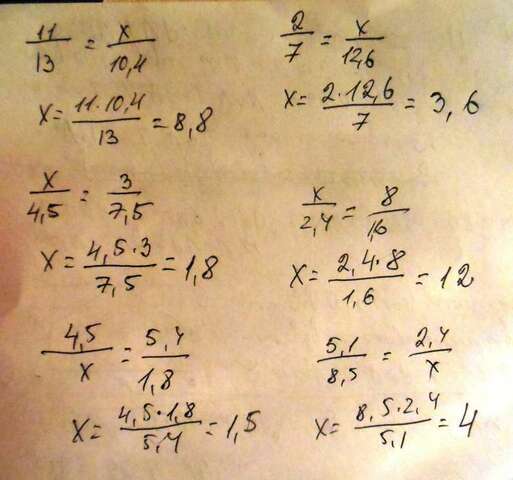 11/13 = x/10,4
x = 11·10,4/13 = 8,8
2/7 = x/12,6
x = 2·12,6/7 = 3,6
x/4,5 = 3/7,5
x = 4,5·3/7,5 = 1,8
x/2,4 = 8/1,6
x = 2,4·8/1,6 = 12
4,5/x = 5,4/1,8
x = 4,5·1,8/5,4 = 1,5
5,1/8,5 = 2,4/x
x = 8,5·2,4/5,1 = 4